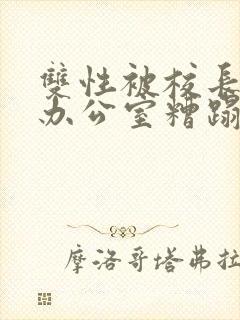 雙性被校長
办公室糟蹋
摩洛哥塔弗拉